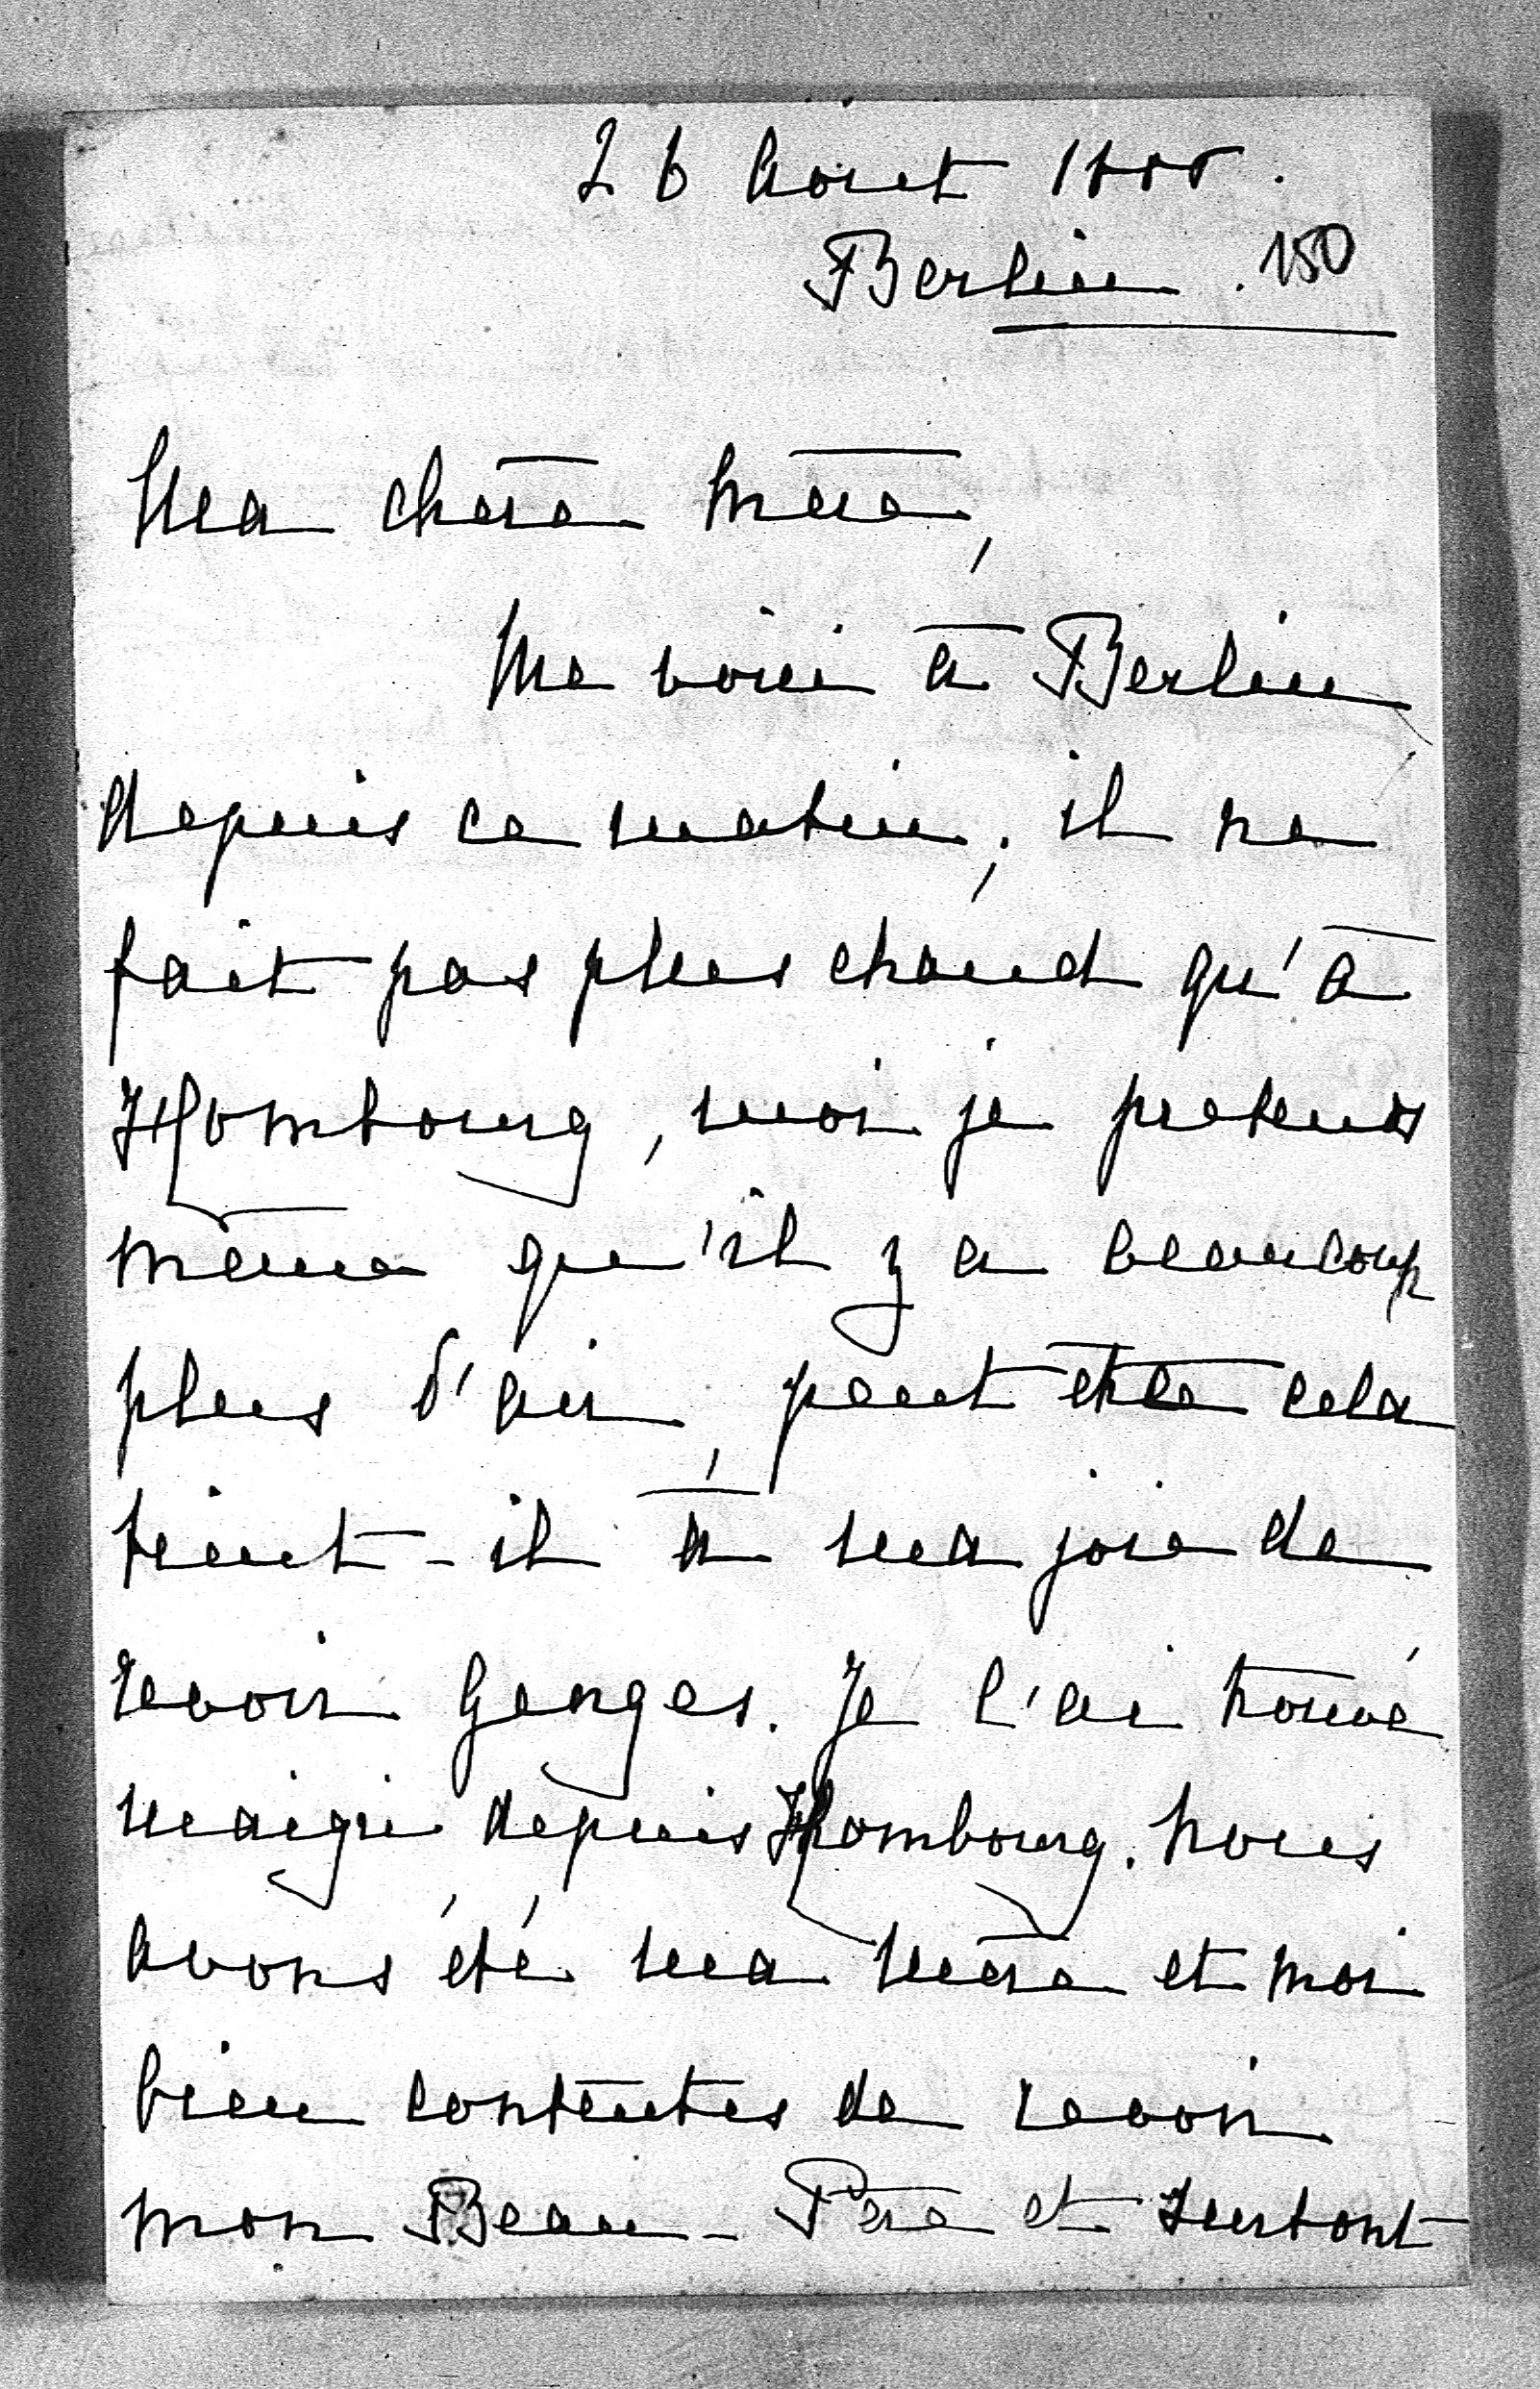 26 Août 1888.
Berlin. 150
Ma chère mère,
Me voici à Berlin
depuis ce matin; il ne
fait pas plus chaud qu'à
Hombourg, moi je pretends
même qu'il y a beaucoup
plus d'air, peut être cela
tient-il à ma joie de
revoir Georges. Je l'ai trouvé
maigri depuis Hombourg. Nous
avons été ma mère et moi
bien contentes de revoir
mon Beau-Père et surtout